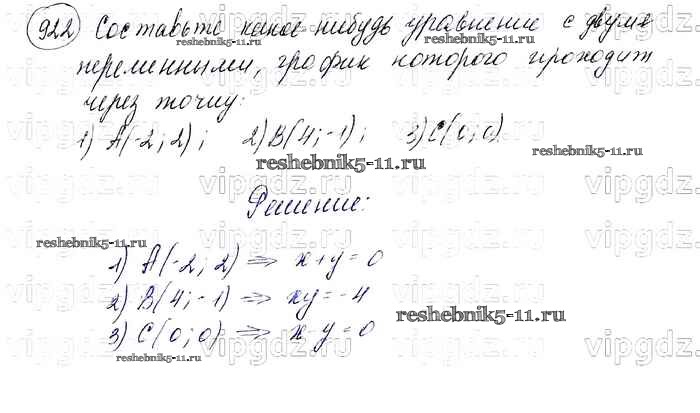 922 Составьте какое нибудь уравнение с двумя
переменными, график которого проходит
через точку:
1) A(-2; 2); 2) B(4; -1); 3) C(0; 0)
Решение:
1) A(-2; 2) => x+y=0
2) B(4; -1) => xy=-4
3) C(0; 0) => x-y=0
reshebnik5-11.ru
reshebnik5-11.ru
reshebnik5-11.ru
reshebnik5-11.ru
reshebnik5-11.ru
reshebnik5-11.ru
vipgdz.ru